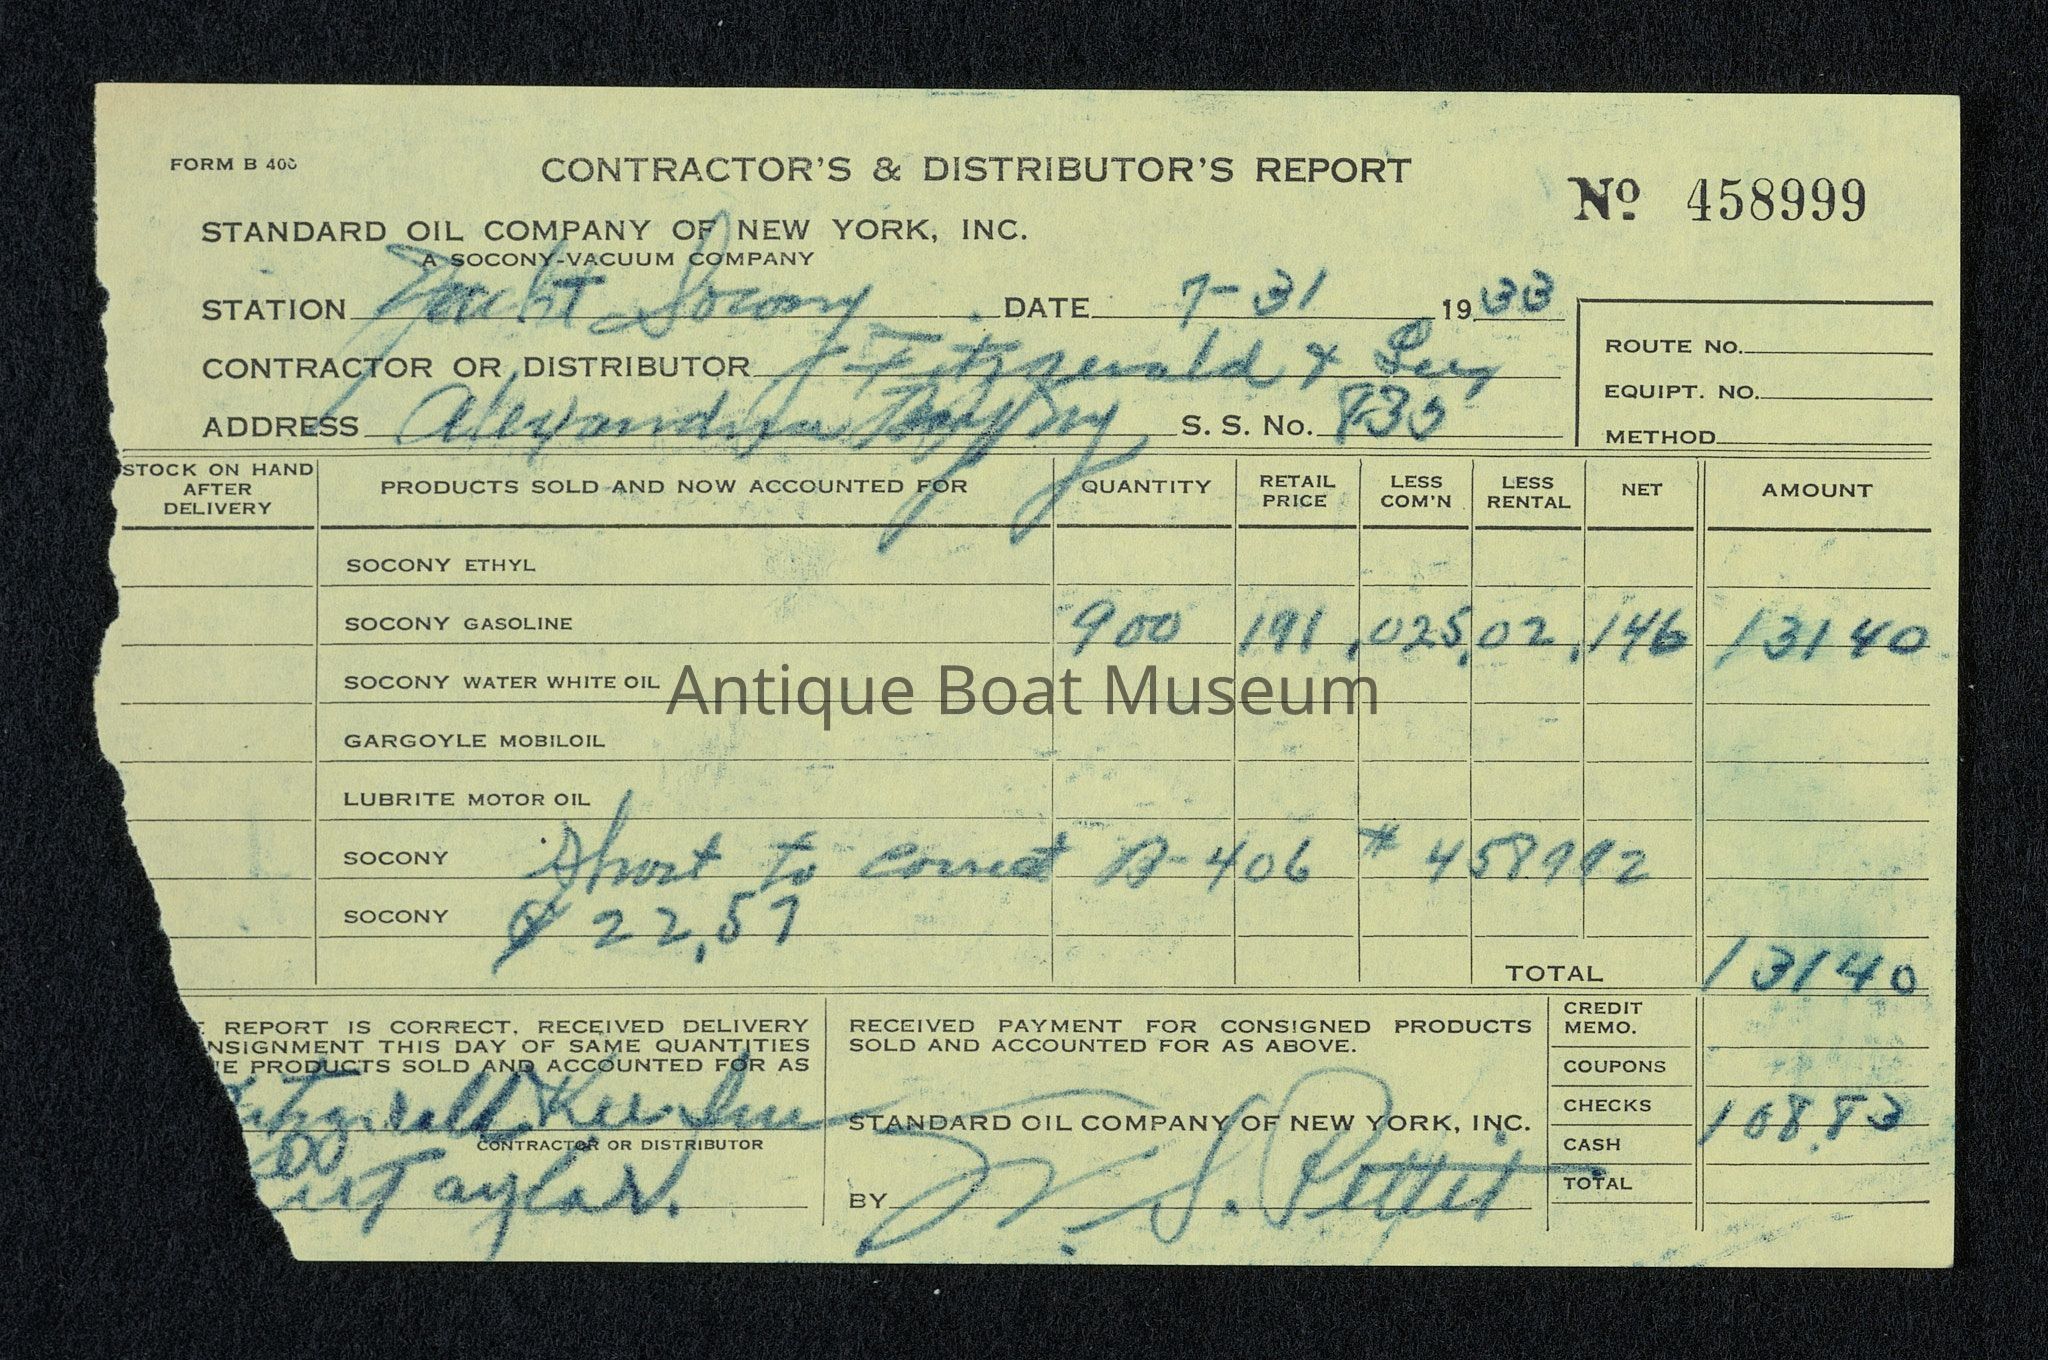 FORM B 406
CONTRACTOR'S & DISTRIBUTOR'S REPORT
No 458999
STANDARD OIL COMPANY OF NEW YORK, INC.
A SOCONY-VACUUM COMPANY
STATION Yacht Socony DATE 7-31 1933
CONTRACTOR OR DISTRIBUTOR Fitzgerald & Lee
ADDRESS Alexandria Bay Ny S. S. No. 830
ROUTE NO.
EQUIPT. NO.
METHOD
STOCK ON HAND AFTER DELIVERY PRODUCTS SOLD AND NOW ACCOUNTED FOR QUANTITY RETAIL PRICE LESS COM'N LESS RENTAL NET AMOUNT
SOCONY ETHYL
SOCONY GASOLINE 900 191 .025 .02 .146 13140
SOCONY WATER WHITE OIL
Antique Boat Museum
GARGOYLE MOBILOIL
LUBRITE MOTOR OIL
SOCONY Short to correct B-406 # 458992
SOCONY 22.57
TOTAL 13140
REPORT IS CORRECT. RECEIVED DELIVERY
NSIGNMENT THIS DAY OF SAME QUANTITIES
E PRODUCTS SOLD AND ACCOUNTED FOR AS
CONTRACTOR OR DISTRIBUTOR
Taylor.
RECEIVED PAYMENT FOR CONSIGNED PRODUCTS
SOLD AND ACCOUNTED FOR AS ABOVE.
STANDARD OIL COMPANY OF NEW YORK, INC.
BY S. Pettit
CREDIT MEMO.
COUPONS
CHECKS 108.83
CASH
TOTAL